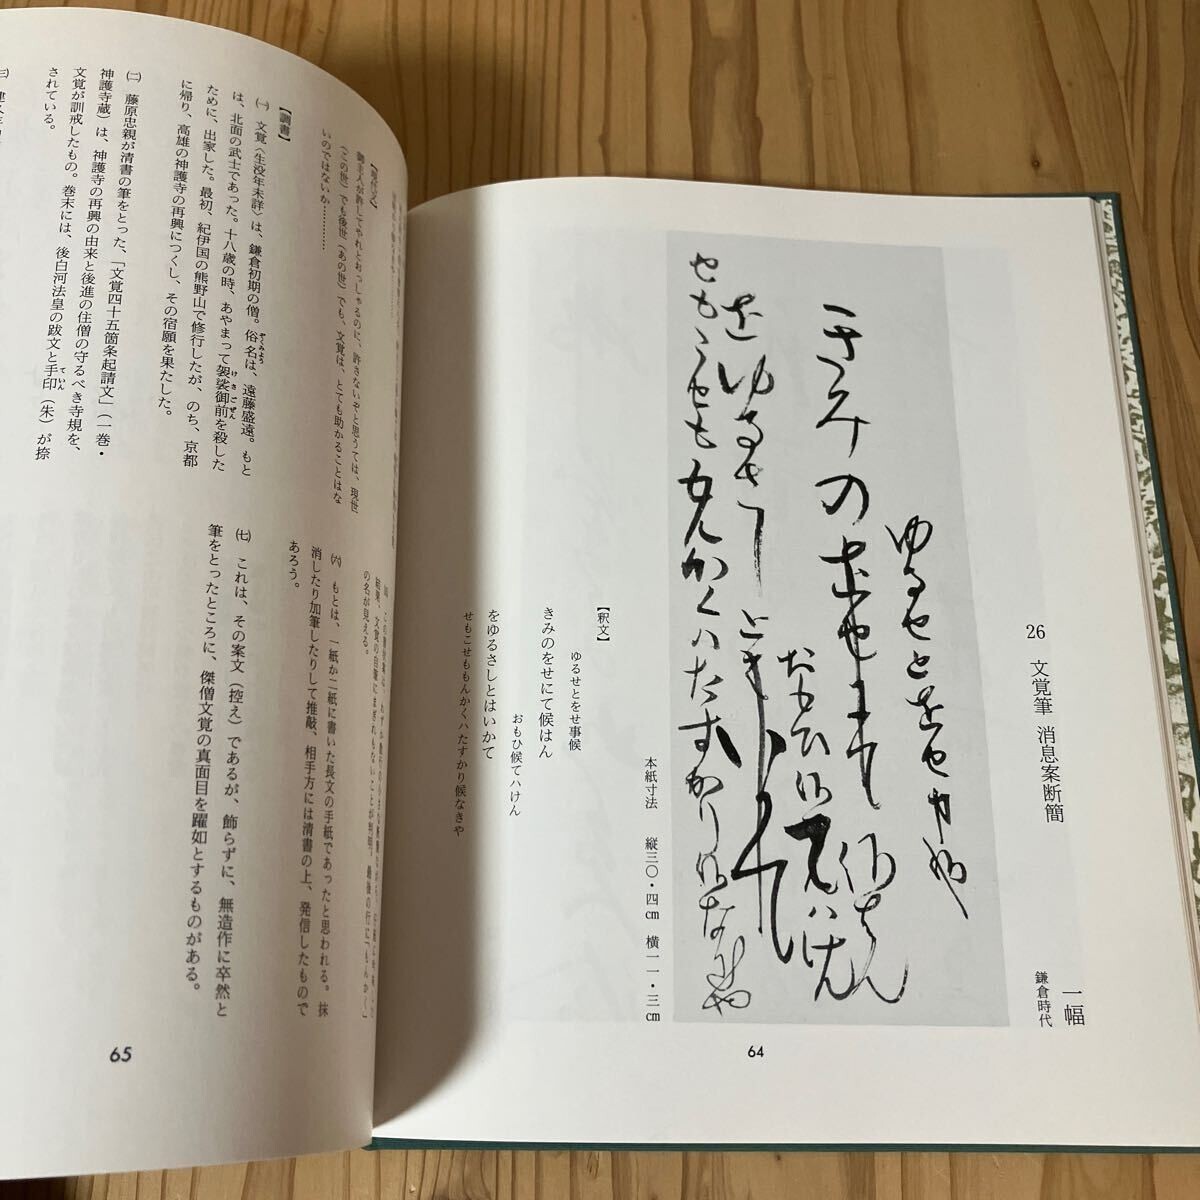 26　文覚筆　消息案断簡
一幅
鎌倉時代
本紙寸法　縦三〇・四cm　横一一・三cm
【釈文】
ゆるせとをせ事候
きみのをせにて候はん
おもひ候てハけん
をゆるさしとはいかて
せもこせももんかくハたすかり候なきや
64
【現代文】
御主人が許してやれとおっしゃるのに、許さないぞと思うては、現世
（この世）でも後世（あの世）でも、文覚は、とても助かることはな
いのではないか………
【調書】
㈠　文覚（生没年未詳）は、鎌倉初期の僧。俗名は、遠藤盛遠。もと
は、北面の武士であった。十八歳の時、あやまって袈裟御前を殺した
ために、出家した。最初、紀伊国の熊野山で修行したが、のち、京都
に帰り、高雄の神護寺の再興につくし、その宿願を果たした。
㈡　藤原忠親が清書の筆をとった、「文覚四十五箇条起請文」（一巻・
神護寺蔵）は、神護寺の再興の由来と後進の住僧の守るべき寺規を、
文覚が訓戒したもの。巻末には、後白河法皇の跋文と手印（朱）が捺
されている。
の名が見える。
㈥　もとは、一紙か二紙に書いた長文の手紙であったと思われる。抹
消したり加筆したりして推敲、相手方には清書の上、発信したもので
あろう。
㈦　これは、その案文（控え）であるが、飾らずに、無造作に卒然と
筆をとったところに、傑僧文覚の真面目を躍如とするものがある。
65